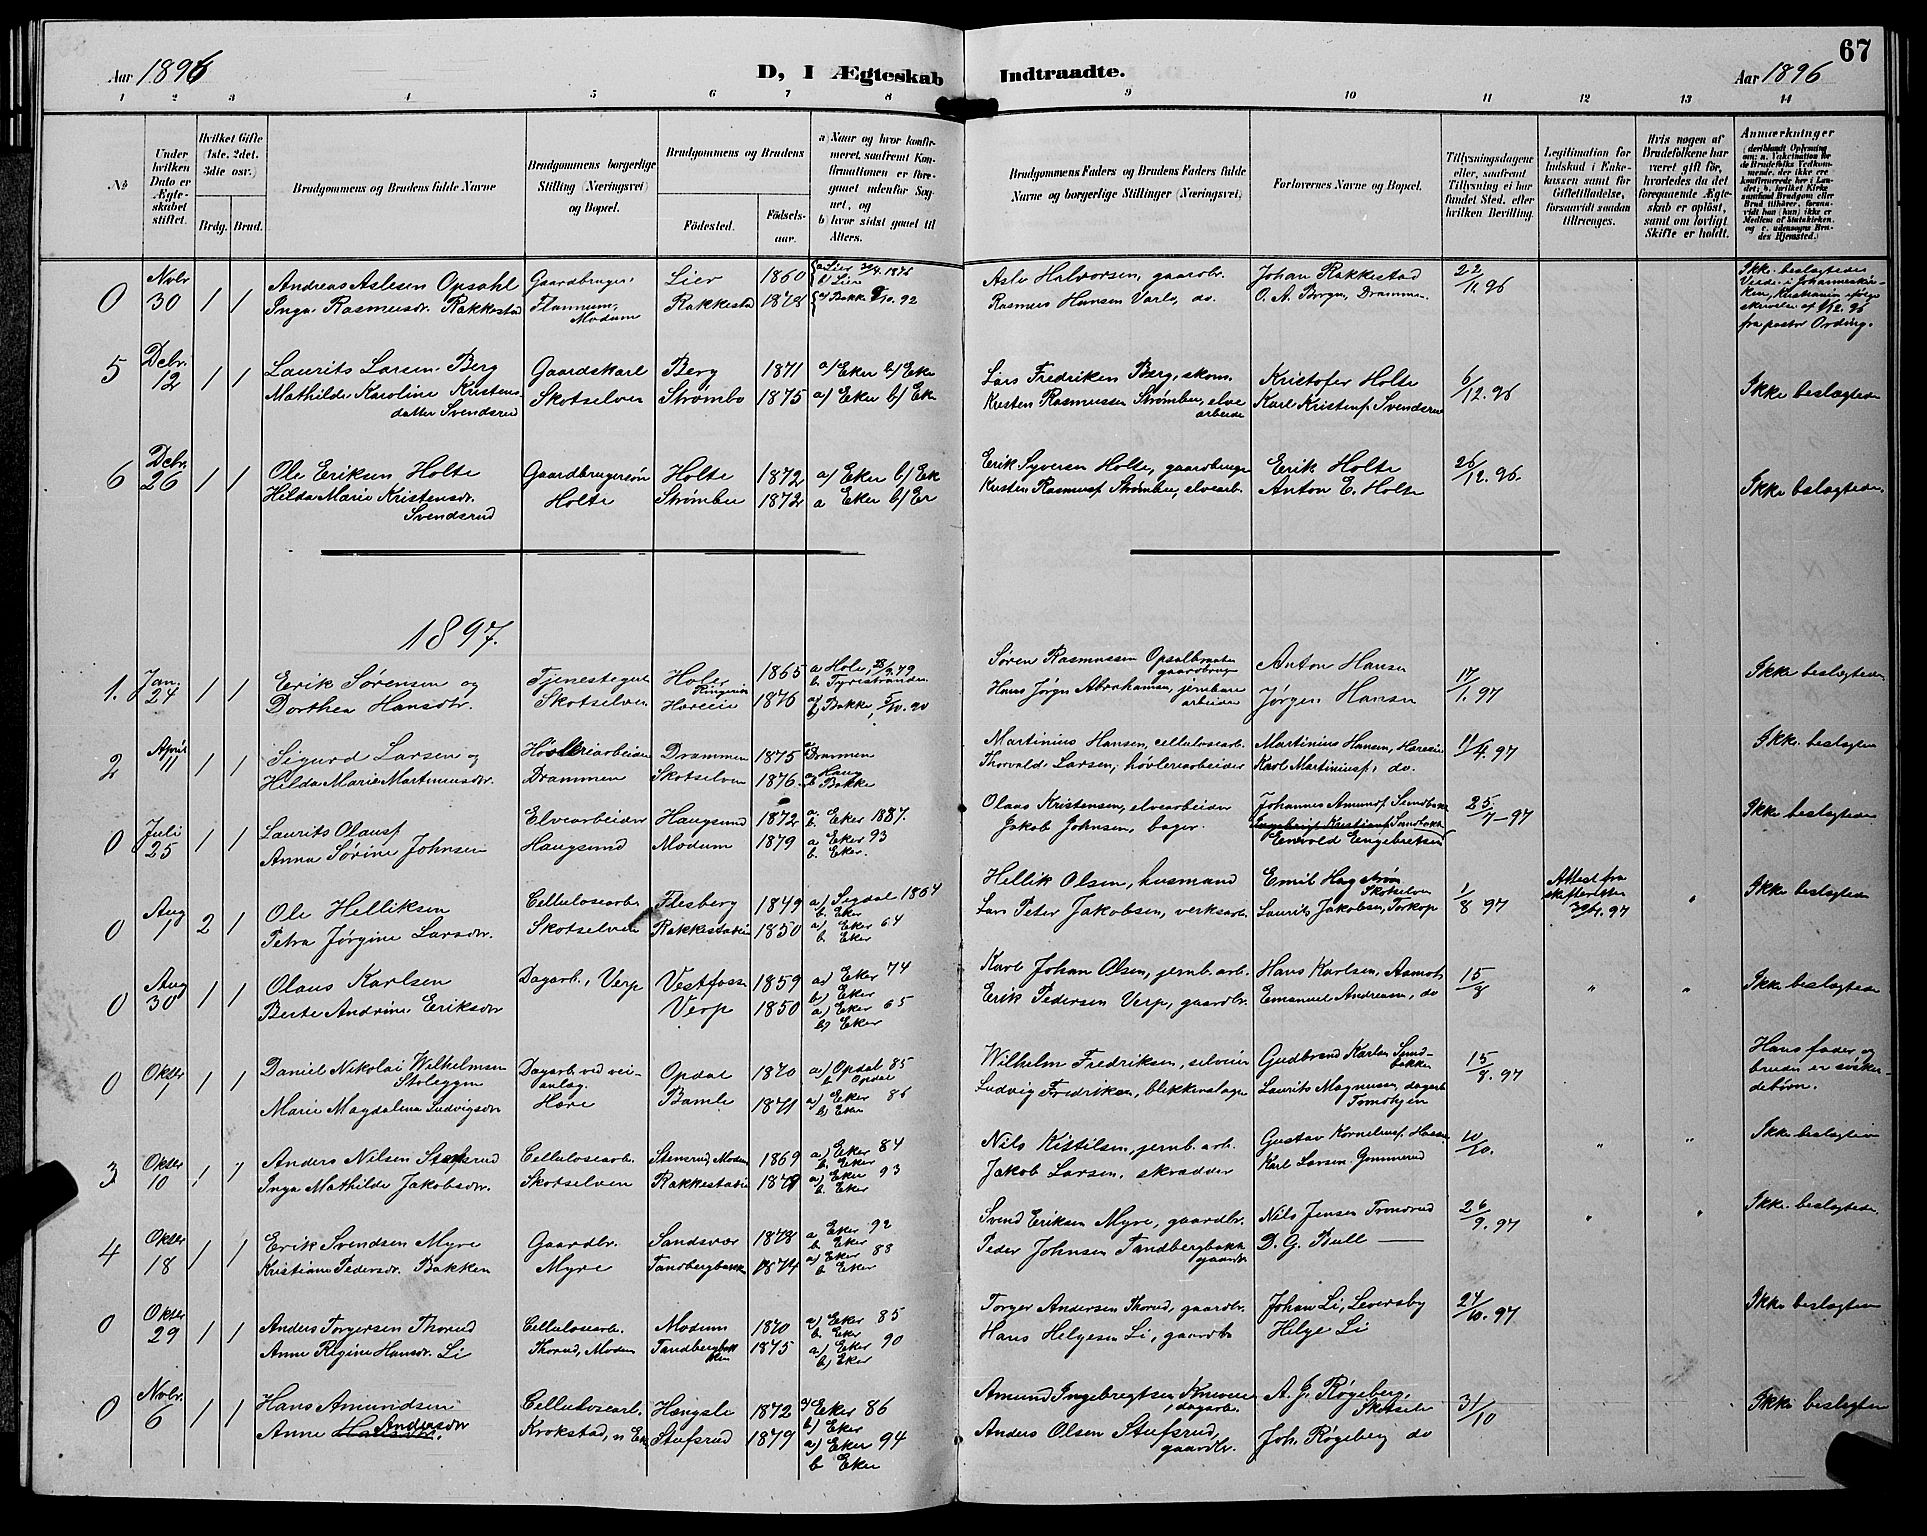 67
Aar 1896
D, I Ægteskab Indtraadte.
Aar 1896
1 2 3 4 5 6 7 8 9 10 11 12 13 14
No
Under hvilken Dato er Ægteskabet stiftet.
Hvilket Gifte (1ste, 2det, 3die osv.)
Brdg. Brud.
Brudgommens og Brudens fulde Navne
Brudgommens borgerlige Stilling (Næringsvei) og Bopæl.
Brudgommens og Brudens
Födested.
Födselsaar.
a) Naar og hvor konfirmeret, saafremt Konfirmationen er foregaaet udenfor Sognet, og
b) hvor sidst gaaet til Alters.
Brudgommens Faders og Brudens Faders fulde Navne og borgerlige Stillinger (Næringsvei)
Forlovernes Navne og Bopæl.
Tillysningsdagene eller, saafremt Tillysning ei har fundet Sted, efter hvilken Bevilling.
Legitimation for Indskud i Enkekassen samt for Giftetilladelse, forsaavidt saadan tiltrænges.
Hvis nogen af Brudefolkene har været gift för, hvorledes da det foregaaende Ægteskab er oplöst, samt om lovligt Skifte er holdt.
Anmærkninger (deriblandt Oplysning om: a. Vakcination for de Brudefolks Vedkommende, der ikke ere konfirmerede her i Landet; b. hvilket Kirkesamfund Brudgom eller Brud tilhører, forsaavidt han (hun) ikke er Medlem af Statskirken, og c. udensogns Brudes Hjemsted.)
0 Nobr 30 1 1 Andreas Aslesen Opsahl Gaardbruger Lier 1860 a) Lier 1876 b) Lier Asle Halvorsen, gaardbr. Johan Rakkestad 22/11.96 Ikke beslægtede
Inga Rasmusdr. Rakkestad Flannum, Modum Rakkestad 1878 a) Bakke 9/10.92 Rasmus Hansen Varlo, do. O. A. Borgn, Drammen. Viede i Johanneskirken, Kristiania ifølge skrivelse af 1/12.96 fra pastor Ording.
5 Debr. 12 1 1 Laurits Larsen Berg Gaardskarl Berg 1871 a) Eker b) Eke Lars Fredriksen Berg, skom. Kristofer Holte 6/12.96 Ikke beslægtede
Mathilde Karoline Kristensdatter Svendsrud Skotselven Strømbo 1875 a) Eker b) Ek Kristen Rasmussen Strømber, elvearbeider Karl Kristens. Svendsrud
6 Debr. 26 1 1 Ole Eriksen Holte Gaardbrugersøn Holte 1872 a) Eker b) Ek Erik Syversen Holte, gaardbruger Erik Holte 26/12.96. Ikke beslægtede.
Hilda Marie Kristensdr. Svendsrud Holte Strømber 1872 a Eker b) Er Kristen Rasmuss. Strømber, elvearb. Anton E. Holte
1897.
1. Jan. 24 1 1 Erik Sørensen og Tjenestegut Holer Ringerige 1865 a Hole, 28/9.79 b. Tyristranden Søren Rasmussen Opsalbraaten gaardbruger Anton Hansen 17/1.97 Ikke beslægtede
Dorthea Hansdtr. Skotselven Horeie 1876 a) b) Bakke, 5/10.90 Hans Jørgn Abrahamsen, jernbanearbeider Jørgen Hansen
2 April 11 1 1 Sigurd Larsen og Høvleriarbeider Drammen 1875 a Drammen Martinius Hansen, cellulosearb. Martinius Hansen, Haresien 11/4.97 Ikke beslægtede
Hilda Marie Martinusdtr. Drammen Skotselven 1876. a) Haug b Bakke Thorvald Larsen, høvleriarbeider Karl Martinius. do.
0 Juli 25 1 1 Laurits Olauss Elvearbeider Haugsund 1872 a. b. Eker 1887. Olaus Kristensen, elvearbeider Johannes Amunds. Sundbakk 25/7-97 Ikke beslægtede
Anna Sørine Johnsen Haugsund Modum 1879 a Eker 93 b. Eker. Jakob Johnsen, bager. Engebrigt Kristians. Sundbakk Enevold Engebretsen
0 Aug 7 2 1 Ole Helliksen Cellulosearb. Flesberg 1849 a) Sigdal 1864 b. Eker Hellik Olsen, husmand Emil Hagstrøm Skotselven 1/8 97 Attest fra skifteretten 97 Ikke beslægtede
Petra Jørgine Larsdtr. Skotselven Rakkestad 1850 a) Eker 64 b Eker Lars Peter Jakobsen, verksarb. Laurits Jakobsen, Torkop
0 Aug 30 1 1 Olaus Karlsen Dagarb., Verp Vestfossen 1859 a) Eker 74 b) Eker Karl Johan Olsen, jernb. arb. Hans Karlsen, Aamot 15/8 Ikke beslægtede
Berte Andrine Eriksdtr Verp 1850 a) Eker 65 b) Eker Erik Pedersen Verp, gaardbr. Emanuel Andreasen, do
0 Oktbr 7 1 1 Daniel Nikolai Wilhelmsen Stoleggen Dagarb. ved veianlæg. Opdal 1870 a) Opdal 85 b Opdal Wilhelm Fredriksen, selveier Gudbrand Karlsen Sundbakken 15/8.97 Hans fader og bruden er søskendebørn.
Marie Magdalena Ludvigsdr. Høre Bamle 1871 a) Eker 86 b) Eker Ludvig Fredriksen, blikkenslager Laurits Magnussen, dagarb.
3 Oktbr 10 1 1 Anders Nilsen Stensrud Cellulosearb. Stensrud, Modum 1869 a) Eker 84 b. Eker Nils Kittilsen, jernb. arb. Gustav Kornelius. Hassen 10/10. Ikke beslægtede
Inga Mathilde Jakobsdtr. Skotselven Rakkestad 1879 a) Eker 93 b Eker Jakob Larsen, skrædder Karl Larsen Gommerud
4 Oktbr 18 1 1 Erik Svendsen Myre Gaardbr. Sandsvær 1878 a Eker 92 b. Eker Svend Eriksen Myre, gaardbr. Nils Jensen Tomdrud 26/9.97 Ikke beslægtede
Kristiane Pedersdr. Bakken Myre Tandbergbakken 1874 a) Eker 88 b Eker Peder Johnsen Tandbergbakk gaardbr D. G. Bull
0 Oktbr 29 1 1 Anders Torgersen Thorud Cellulosearb. Modum 1870 a) Eker 85 b Eker Torger Andersen Thorud, gaardbr. Johan Li, Leversby 24/10.97 Ikke beslægtede
Anne Regine Hansdr. Li Thorud, Modum Tandbergbakken 1875 a) Eker 90 b) Eker Hans Helgesen Li, gaardbr Helge Li
0 Nobr. 6 1 1 Hans Amundsen Cellulosearb. Hængsle 1872 a) Eker 86 b) Eker Amund Ingebregtsen Knive, dagarb. A. J. Røgeberg, Skotselv 31/10 Ikke beslægtede
Anne Hansdtr. Andersdtr Krokstad, n Ek Stufsrud 1879 a) Eker 94 b Eker Anders Olsen Stufsrud, gaardbr. Joh. Røgeberg do